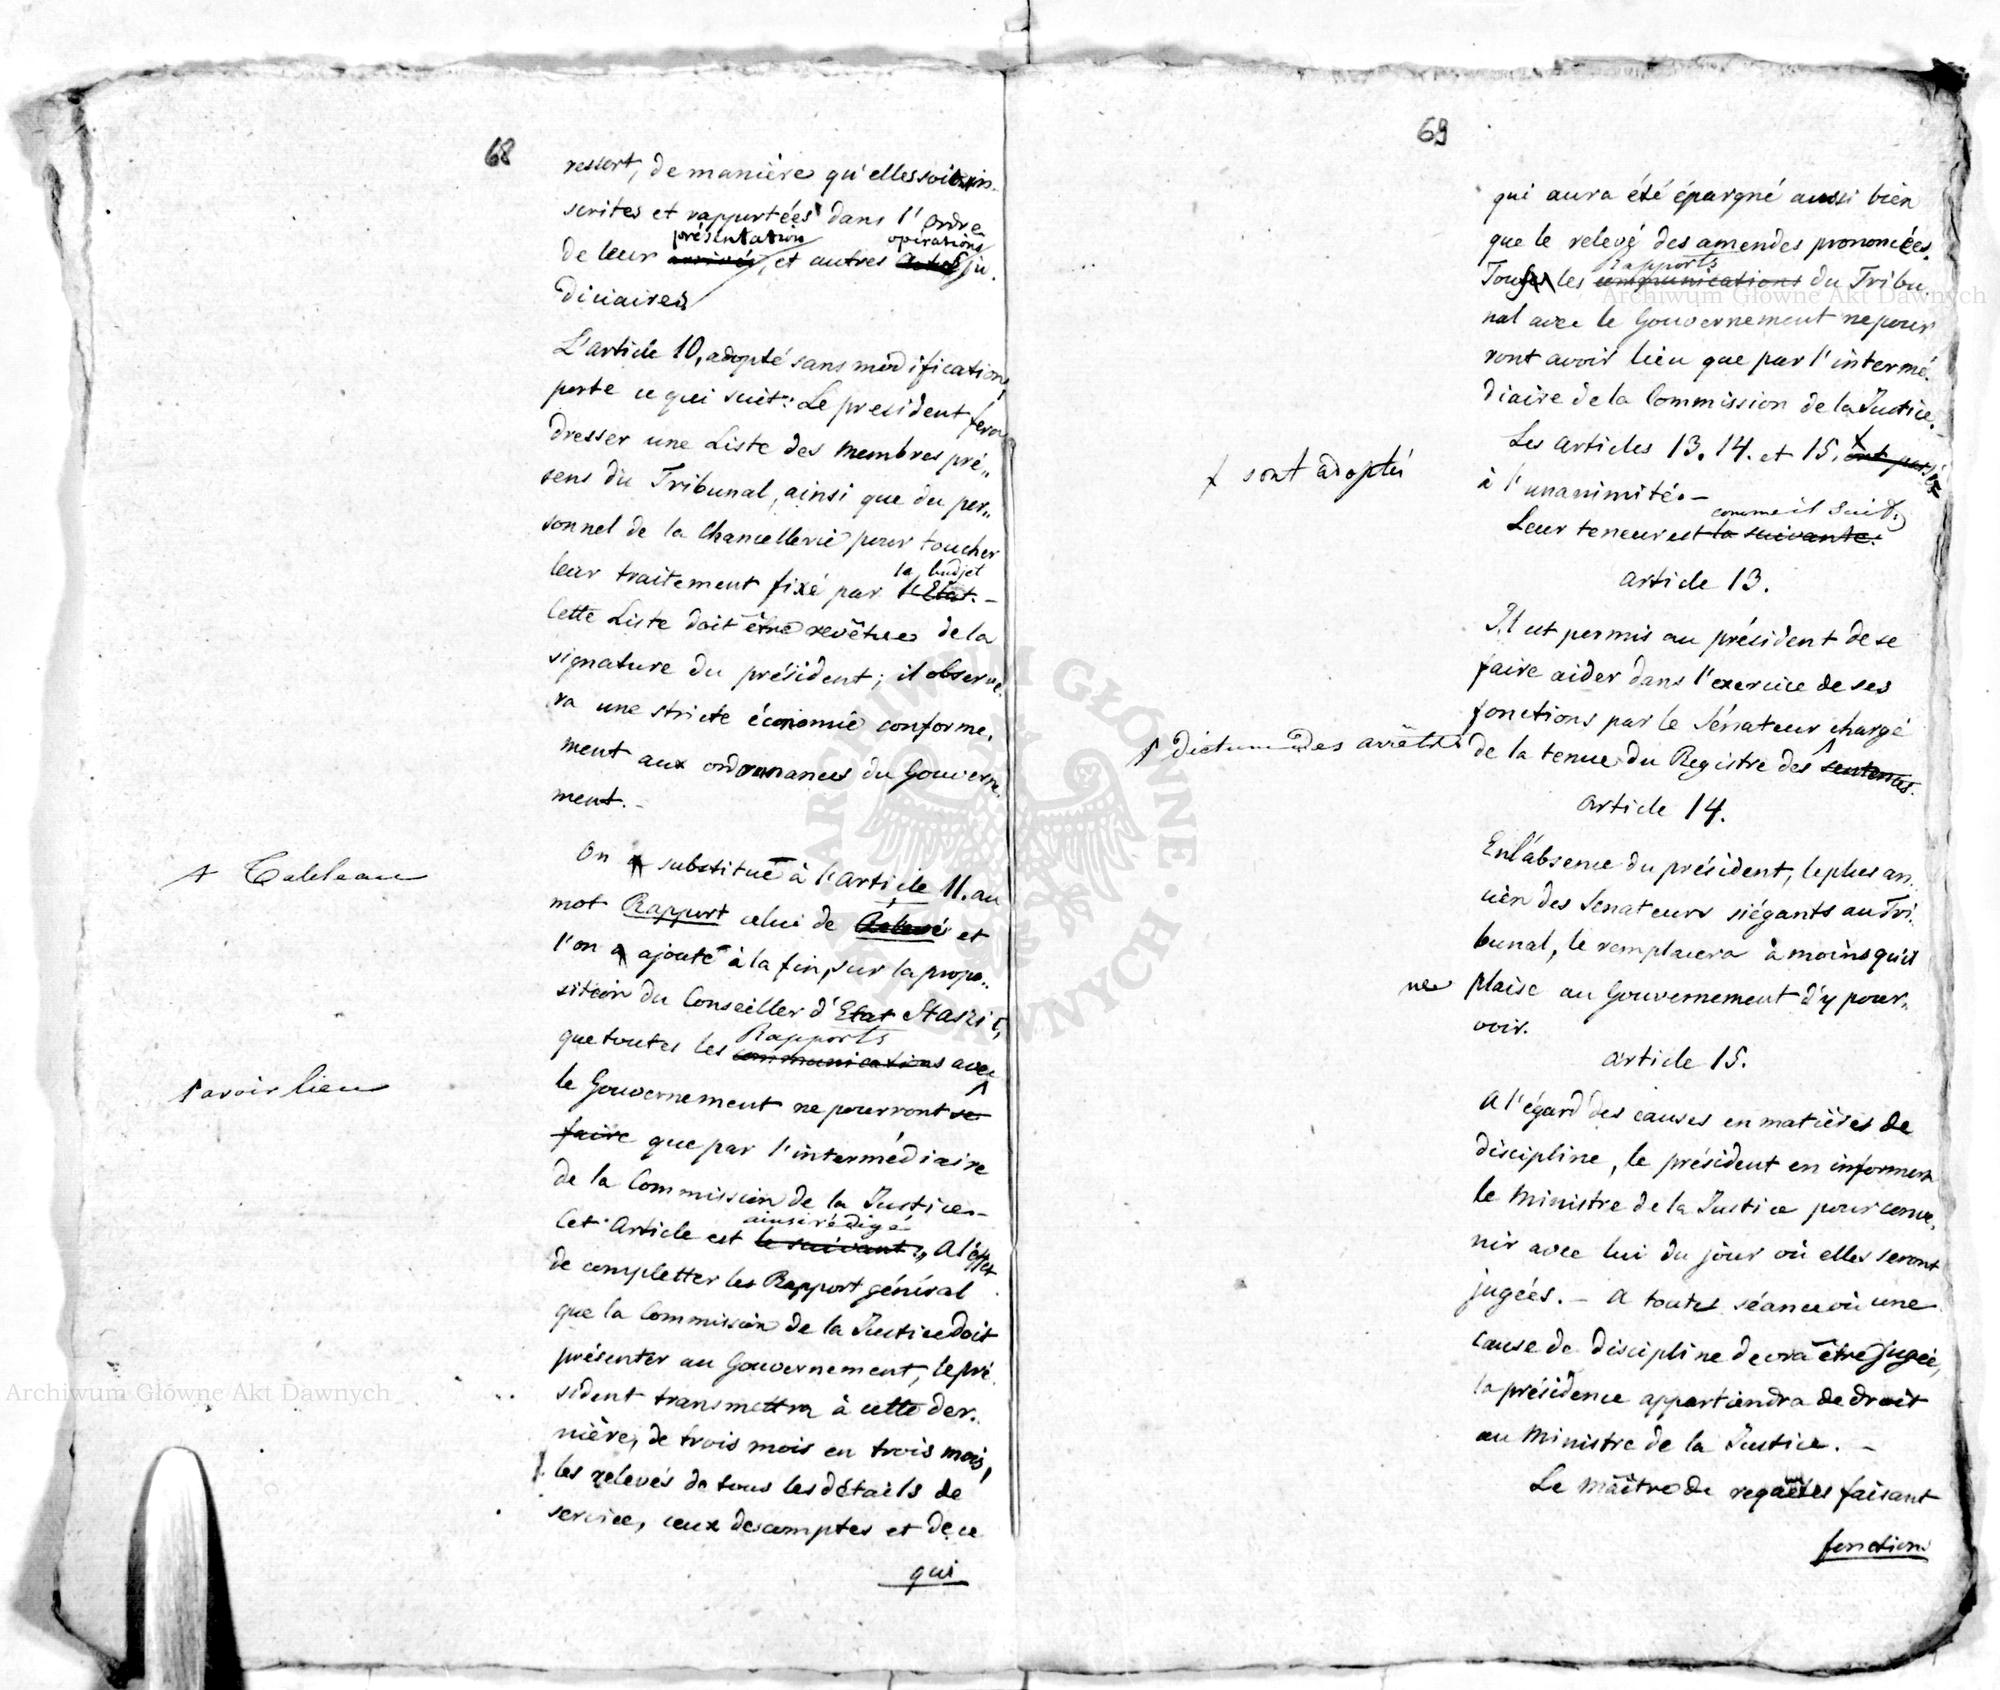 68
ressort, de manière qu'elles soient in-
scrites et rapportées dans l'ordre
présentation opérations
de leur arrivée, et autres actes ju.
diciaires
L'article 10, adopté sans modification,
porte ce qui suit: Le president fera
dresser une Liste des membres pré..
sens du Tribunal, ainsi que du per..
sonnel de la Chancellerie pour toucher
le budjet
leur traitement fixé par l'Etat. -
Cette Liste doit être revêtue de la
signature du président; il observe.
ra une stricte économie conforme.
ment aux ordonnances du Gouverne.
ment. -
On a substitué à l'article 11. au
Tableau
mot Rapport celui de Relevé et
l'on a ajouté à la fin, sur la propo..
sition du Conseiller d'Etat Staszic,
Rapports
que toutes les communications avec
le Gouvernement ne pourront se
avoir lieu
faire que par l'intermédiaire
de la Commission de la Justice. -
ainsi rédigé
Cet Article est le suivant: „ A l'effet
de completter les Rapport général
que la Commission de la Justice doit
présenter au Gouvernement, le pré.
sident transmettra à cette der..
nière, de trois mois en trois mois,
les relevés de tous les détails de
service, ceux des comptes et de ce
qui
69
qui aura été épargné aussi bien
que le relevé des amendes prononcées.
Rapports
Tous les communications du Tribu.
nal avec le Gouvernement ne pour
ront avoir lieu que par l'intermé.
diaire de la Commission de la Justice. -
Les articles 13. 14. et 15. ont passé
sont adoptés
à l'unanimité. -
comme il suit.
Leur teneur est la suivante:
article 13.
Il est permis au président de se
faire aider dans l'exercice de ses
fonctions par le Sénateur chargé
dictum des arrêts
de la tenue du Registre des sentences.
article 14.
En l'absence du président, le plus an.
cien des Senateurs siégants au Tri.
bunal, le remplacera à moins qu'il
ne plaise au Gouvernement d'y pour..
voir.
article 15.
A l'égard des causes en matières de
discipline, le président en informera
le Ministre de la Justice pour conve.
nir avec lui du jour où elles seront
jugées. - A toutes séance où une
cause de discipline devra être jugée,
la présidence appartiendra de droit
au Ministre de la Justice. -
Le Maître de requêtes faisant
fonctions
Archiwum Główne Akt Dawnych
Archiwum Główne Akt Dawnych
ARCHIWUM GŁÓWNE AKT DAWNYCH